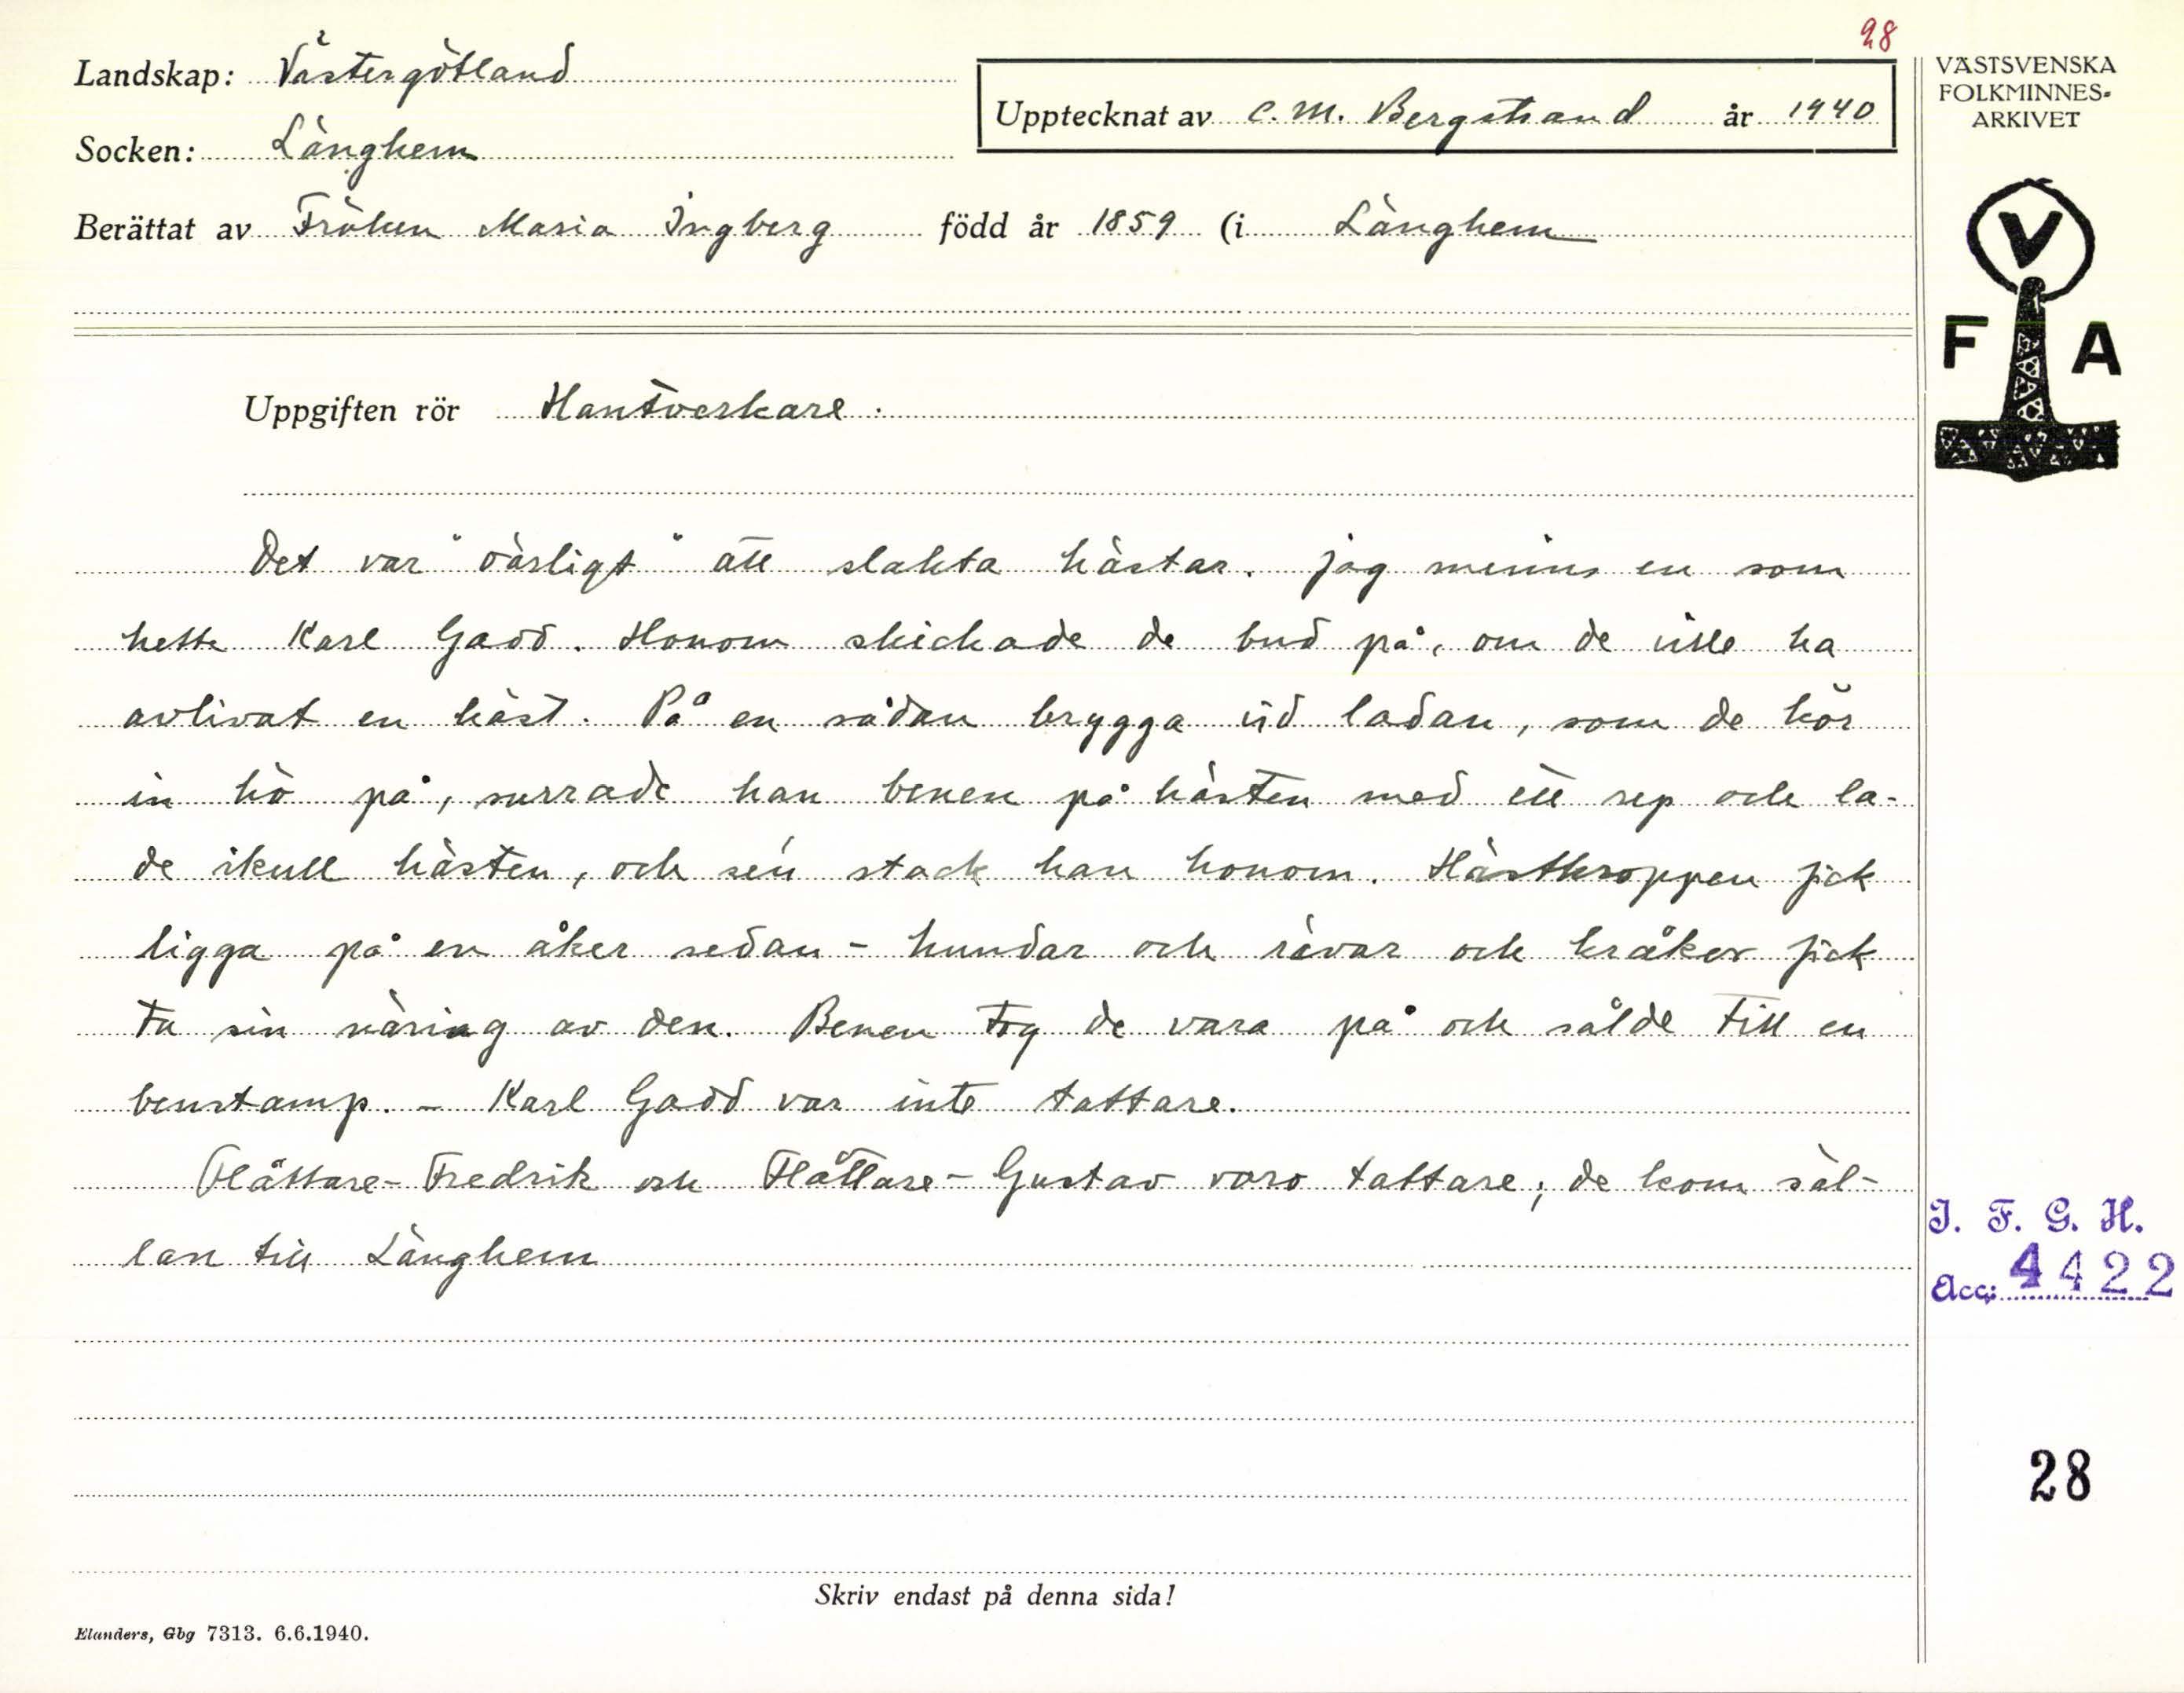 28
Landskap: Västergötland
Upptecknat av C. M. Bergstrand år 1940
Socken: Länghem
Berättat av Fröken Maria Ingberg född år 1859 (i Länghem
VÄSTSVENSKA
FOLKMINNES-
ARKIVET
V
F A
Uppgiften rör Hantverkare.
Det var "oärligt" att slakta hästar. Jag minns en som
hette Karl Gadd. Honom skickade de bud på, om de ville ha
avlivat en häst. På en sådan brygga vid ladan, som de kör
in hö på, surrade han benen på hästen med ett rep och la-
de ikull hästen, och sen stack han honom. Hästkroppen fick
ligga på en åker sedan - hundar och rävar och kråkor fick
ta sin näring av den. Benen tog de vara på och sålde till en
benstamp. - Karl Gadd var inte tattare.
Flåttare-Fredrik och Flåttare-Gustav voro tattare; de kom säl-
lan till Länghem
I. F. G. H.
Acc: 4422
28
Skriv endast på denna sida!
Elanders, Gbg 7313. 6.6.1940.